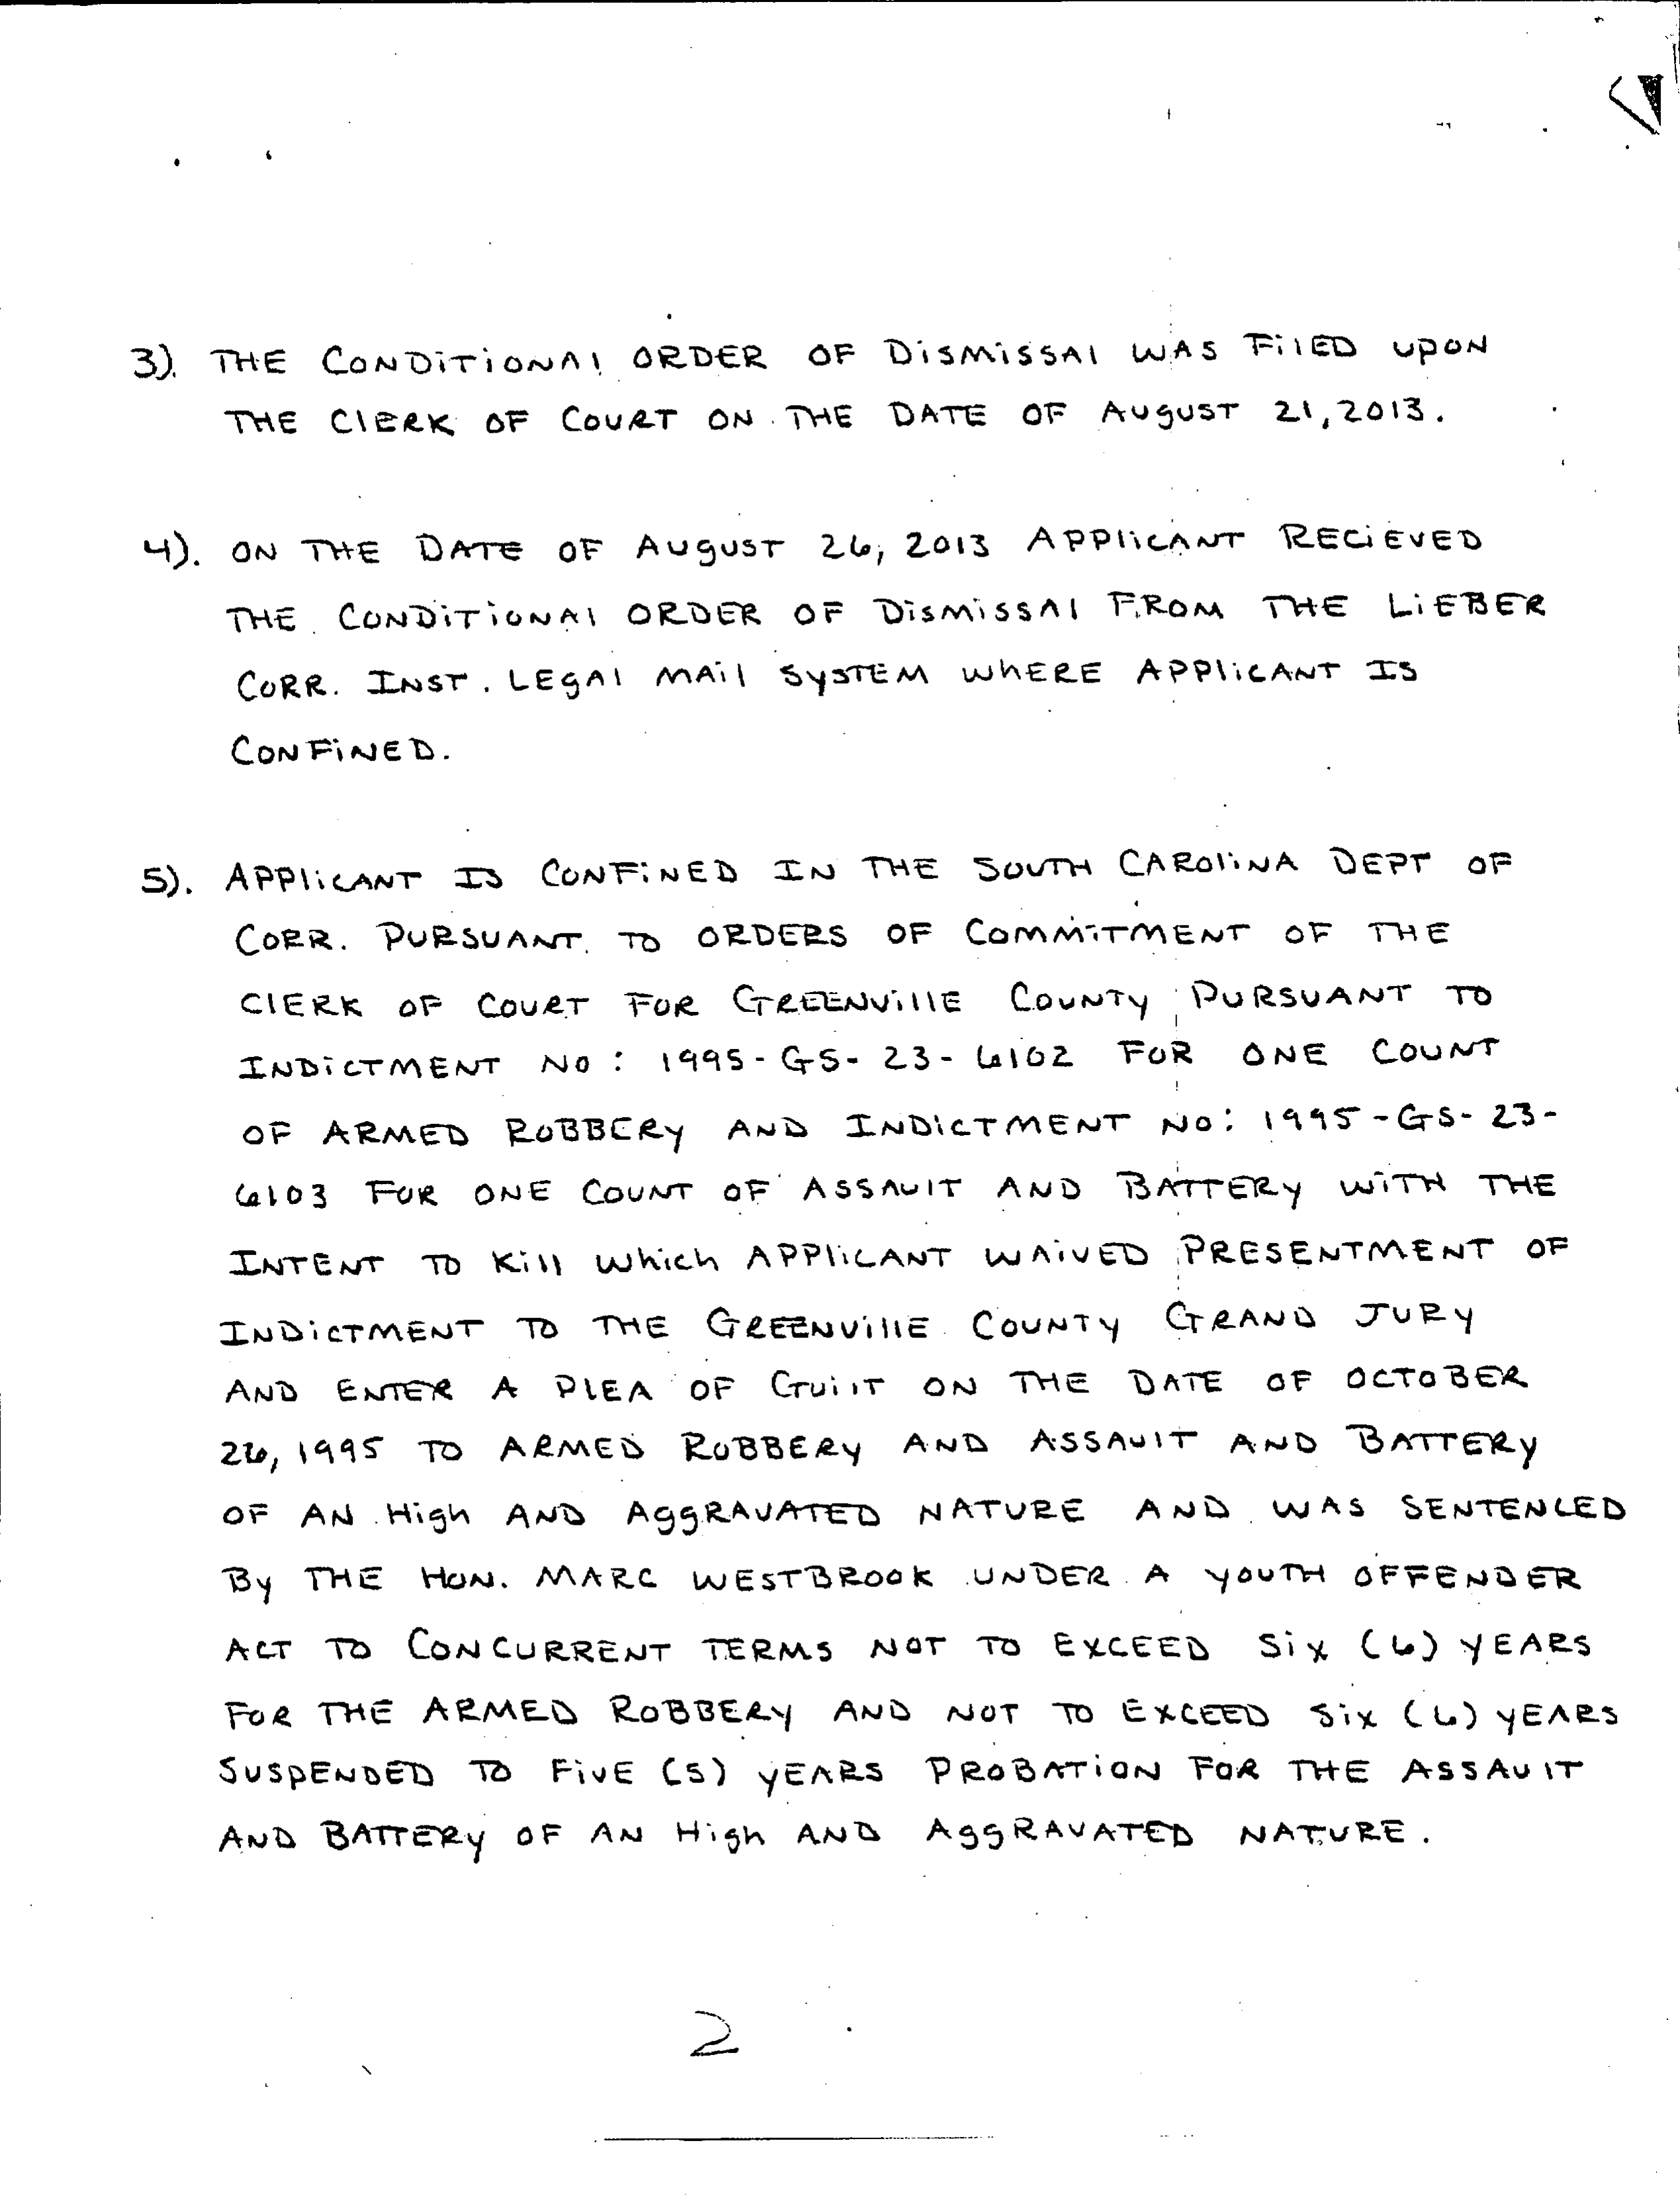 3). THE CONDiTiONAl ORDER OF DiSMiSSAl WAS FilED UPON
THE ClERK OF COURT ON THE DATE OF AUgUST 21, 2013.
4). ON THE DATE OF AUgUST 26, 2013 APPliCANT RECiEVED
THE CONDiTiONAl ORDER OF DiSMiSSAl FROM THE LiEBER
CORR. INST. LEgAl MAil SySTEM WhERE APPliCANT IS
CONFiNED.
5). APPliCANT IS CONFiNED IN THE SOUTH CAROliNA DEPT OF
CORR. PURSUANT TO ORDERS OF COMMiTMENT OF THE
ClERK OF COURT FOR GREENVillE COUNTy PURSUANT TO
INDiCTMENT NO: 1995-GS-23-6102 FOR ONE COUNT
OF ARMED ROBBERy AND INDiCTMENT NO: 1995-GS-23-
6103 FOR ONE COUNT OF ASSAUlT AND BATTERy WiTH THE
INTENT TO Kill Which APPliCANT WAiVED PRESENTMENT OF
INDiCTMENT TO THE GREENVillE COUNTy GRAND JURy
AND ENTER A PlEA OF GUilT ON THE DATE OF OCTOBER
26, 1995 TO ARMED ROBBERy AND ASSAUlT AND BATTERy
OF AN High AND AggRAVATED NATURE AND WAS SENTENCED
By THE HON. MARC WESTBROOK UNDER A yOUTH OFFENDER
ACT TO CONCURRENT TERMS NOT TO EXCEED Six (6) yEARS
FOR THE ARMED ROBBERy AND NOT TO EXCEED Six (6) yEARS
SUSPENDED TO FiVE (5) yEARS PROBATiON FOR THE ASSAUlT
AND BATTERy OF AN High AND AggRAVATED NATURE.
2